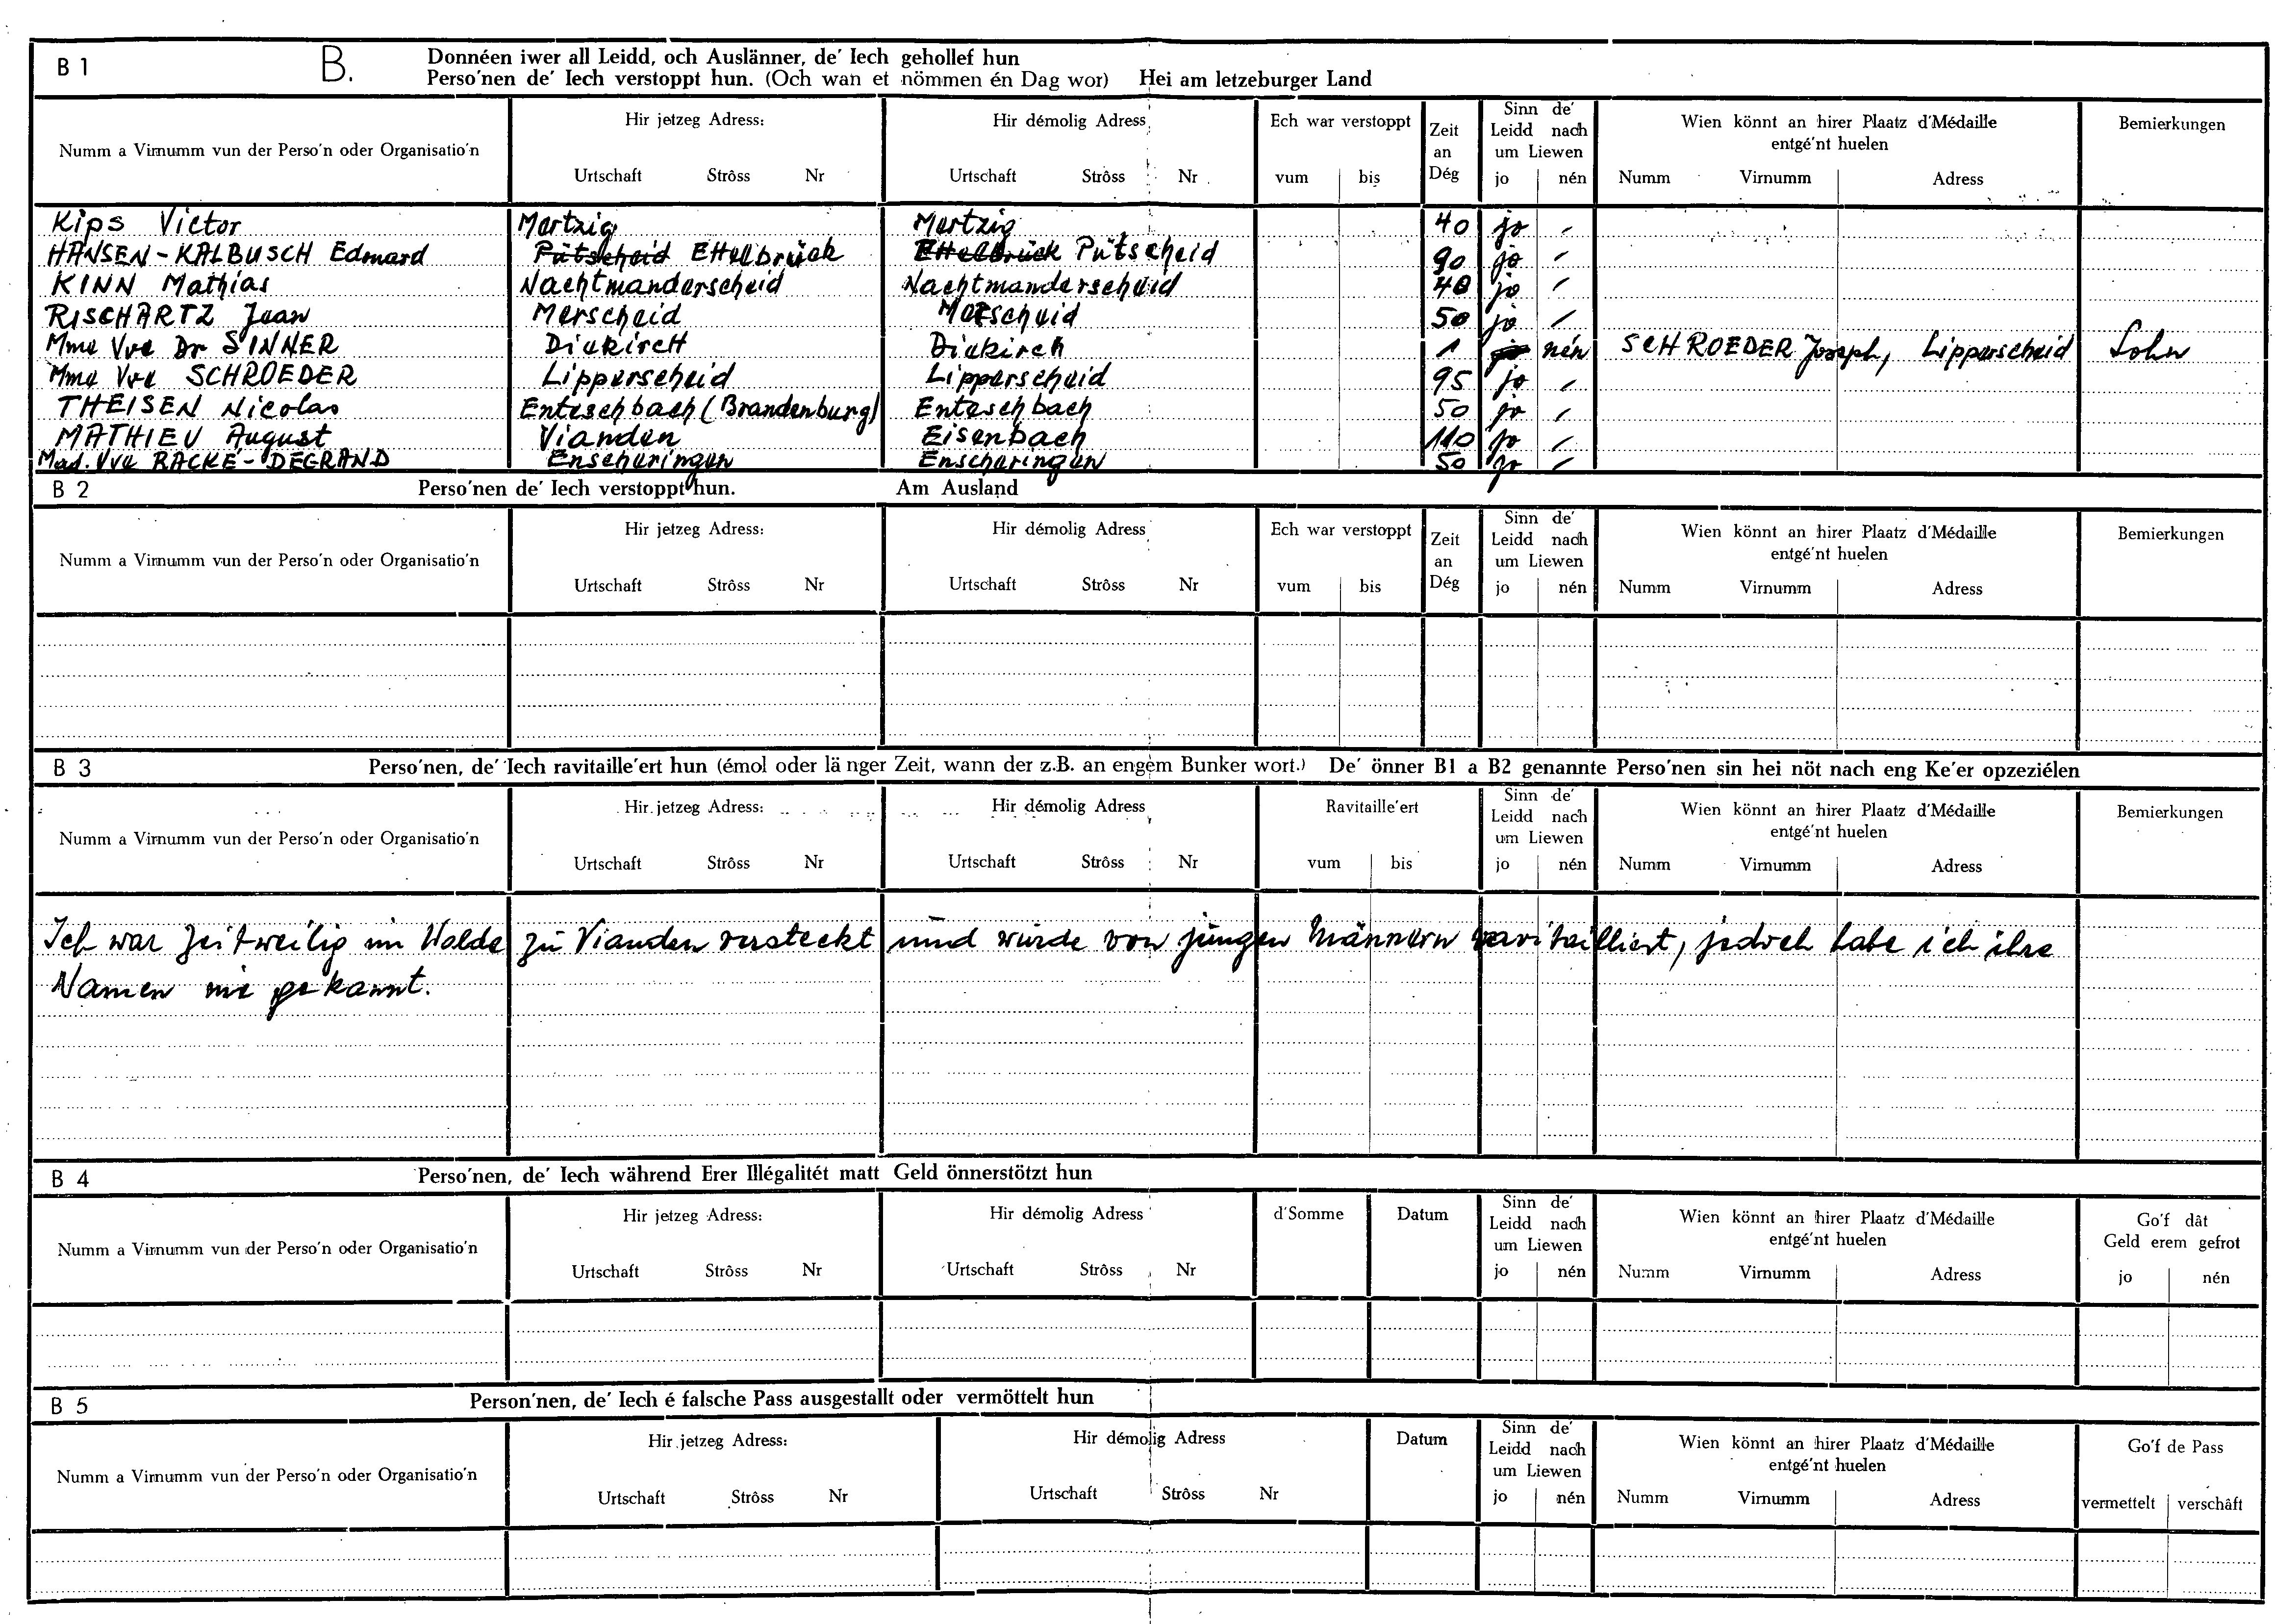 B 1 B. Donnéen iwer all Leidd, och Auslänner, de' Iech gehollef hun
Perso'nen de' Iech verstoppt hun. (Och wan et nömmen én Dag wor) Hei am letzeburger Land
Numm a Virnumm vun der Perso'n oder Organisatio'n Hir jetzeg Adress: Hir démolig Adress Ech war verstoppt Zeit an Dég Sinn de' Leidd nach um Liewen Wien könnt an hirer Plaatz d'Médaille entgé'nt huelen Bemierkungen
Urtschaft Strôss Nr Urtschaft Strôss Nr vum bis jo nén Numm Virnumm Adress
Kips Victor Mertzig Mertzig 40 jo
HANSEN-KALBUSCH Edmard Pütscheid Ettelbrück Ettelbrück Pütscheid 90 jo
KINN Mathias Nachtmanderscheid Nachtmanderscheid 40 jo
RISCHARTZ Jean Merscheid Merscheid 50 jo
Mme Vve Dr SINNER Diekirch Diekirch 1 jo nén SCHROEDER Joseph, Lipperscheid Sohn
Mme Vve SCHROEDER Lipperscheid Lipperscheid 95 jo
THEISEN Nicolas Enteschbach (Brandenburg) Enteschbach 50 jo
MATHIEU August Vianden Eisenbach 110 jo
Mad. Vve RACKÉ-DEGRAND Enscheringen Enscheringen 50 jo
B 2 Perso'nen de' Iech verstoppt hun. Am Ausland
Numm a Virnumm vun der Perso'n oder Organisatio'n Hir jetzeg Adress: Hir démolig Adress Ech war verstoppt Zeit an Dég Sinn de' Leidd nach um Liewen Wien könnt an hirer Plaatz d'Médaille entgé'nt huelen Bemierkungen
Urtschaft Strôss Nr Urtschaft Strôss Nr vum bis jo nén Numm Virnumm Adress
B 3 Perso'nen, de' Iech ravitaille'ert hun (émol oder länger Zeit, wann der z.B. an engem Bunker wort.) De' önner B1 a B2 genannte Perso'nen sin hei nöt nach eng Ke'er opzeziélen
Numm a Virnumm vun der Perso'n oder Organisatio'n Hir jetzeg Adress: Hir démolig Adress Ravitaille'ert Sinn de' Leidd nach um Liewen Wien könnt an hirer Plaatz d'Médaille entgé'nt huelen Bemierkungen
Urtschaft Strôss Nr Urtschaft Strôss Nr vum bis jo nén Numm Virnumm Adress
Ich war zeitweilig im Walde zu Vianden versteckt und wurde von jungen Männern ravitailliert, jedoch habe ich ihre
Namen nie gekannt.
B 4 Perso'nen, de' Iech während Erer Illégalitét matt Geld önnerstötzt hun
Numm a Virnumm vun der Perso'n oder Organisatio'n Hir jetzeg Adress: Hir démolig Adress d'Somme Datum Sinn de' Leidd nach um Liewen Wien könnt an hirer Plaatz d'Médaille entgé'nt huelen Go'f dât Geld erem gefrot
Urtschaft Strôss Nr Urtschaft Strôss Nr jo nén Numm Virnumm Adress jo nén
B 5 Person'nen, de' Iech é falsche Pass ausgestallt oder vermöttelt hun
Numm a Virnumm vun der Perso'n oder Organisatio'n Hir jetzeg Adress: Hir démolig Adress Datum Sinn de' Leidd nach um Liewen Wien könnt an hirer Plaatz d'Médaille entgé'nt huelen Go'f de Pass
Urtschaft Strôss Nr Urtschaft Strôss Nr jo nén Numm Virnumm Adress vermettelt verschâft